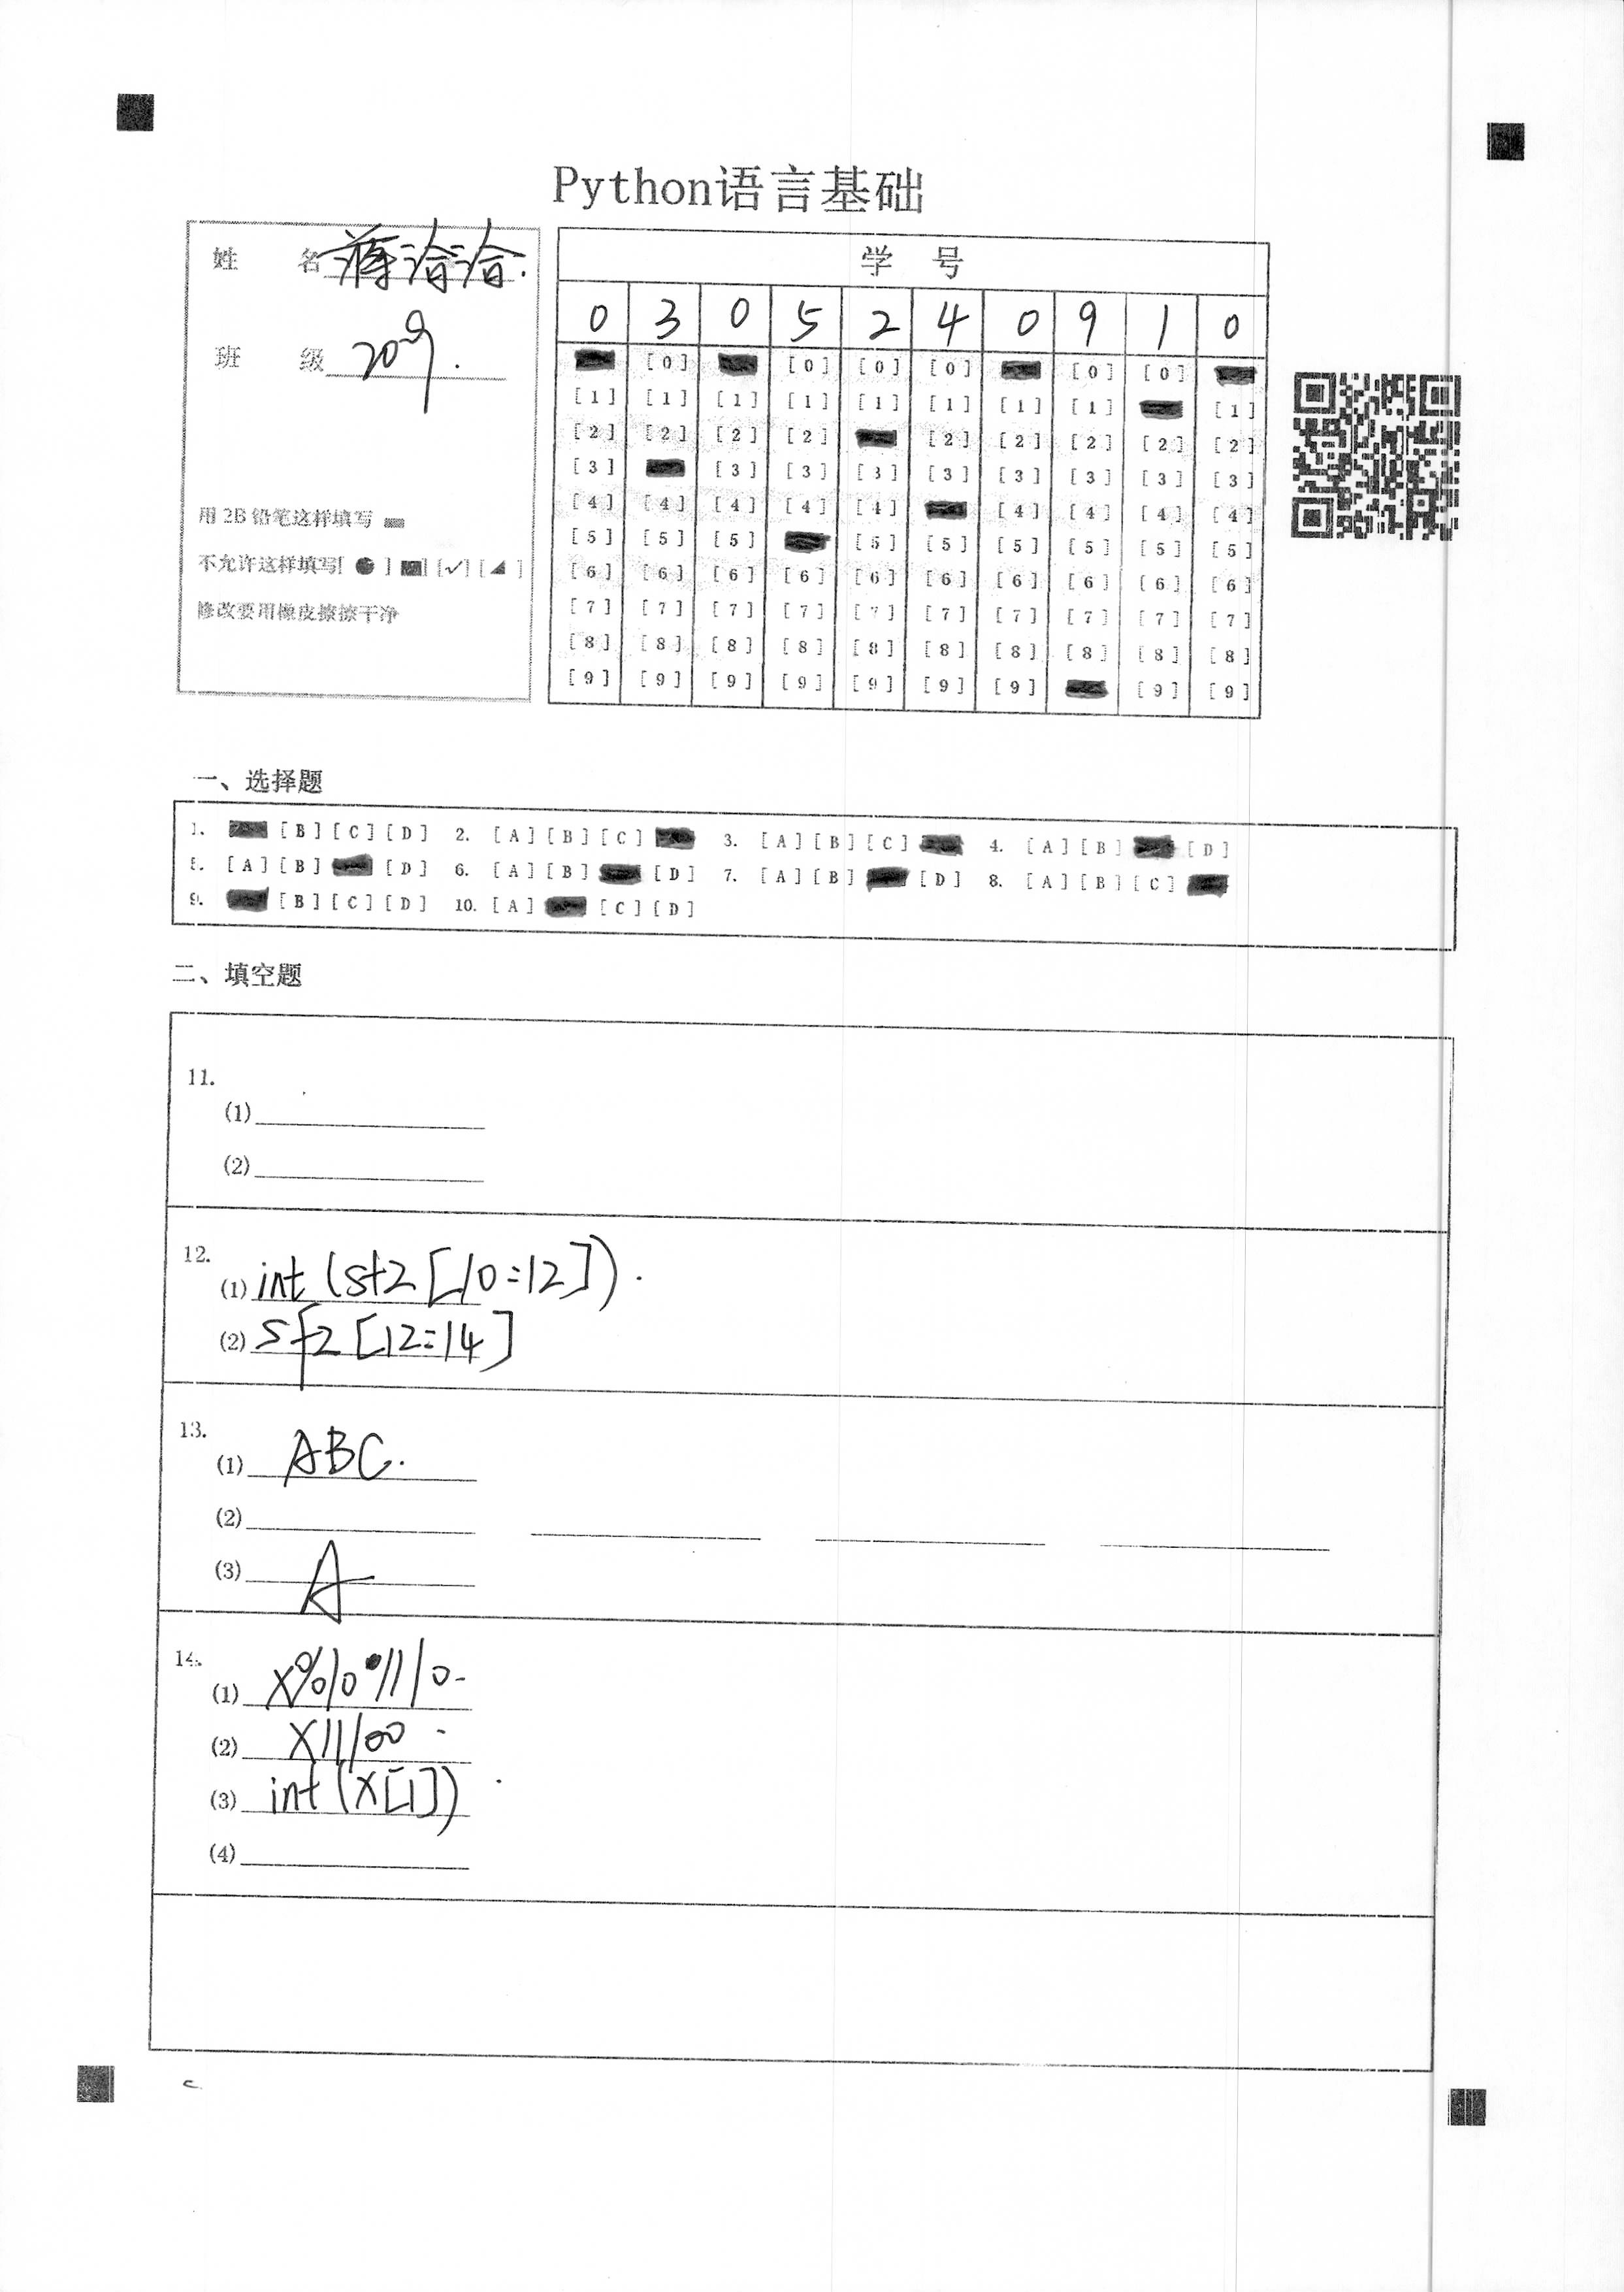 Python语言基础
姓 名 蒋洽洽.
班 级 2009.
用 2B 铅笔这样填写
不允许这样填写[ ● ] [ ■ ] [ ✓ ] [ ◢ ]
修改要用橡皮擦擦干净
学 号
0 3 0 5 2 4 0 9 1 0
[0] [0] [0] [0] [0] [0]
[1] [1] [1] [1] [1] [1] [1] [1] [1]
[2] [2] [2] [2] [2] [2] [2] [2] [2]
[3] [3] [3] [3] [3] [3] [3] [3] [3]
[4] [4] [4] [4] [4] [4] [4] [4] [4]
[5] [5] [5] [5] [5] [5] [5] [5] [5]
[6] [6] [6] [6] [6] [6] [6] [6] [6] [6]
[7] [7] [7] [7] [7] [7] [7] [7] [7] [7]
[8] [8] [8] [8] [8] [8] [8] [8] [8] [8]
[9] [9] [9] [9] [9] [9] [9] [9] [9]
一、选择题
1. [B] [C] [D] 2. [A] [B] [C] 3. [A] [B] [C] 4. [A] [B] [D]
5. [A] [B] [D] 6. [A] [B] [D] 7. [A] [B] [D] 8. [A] [B] [C]
9. [B] [C] [D] 10. [A] [C] [D]
二、填空题
11.
(1)
(2)
12.
(1) int (st2 [10:12]).
(2) st2 [12:14]
13.
(1) ABC.
(2)
(3) A
14.
(1) x%10//10
(2) x//100
(3) int (x[1])
(4)